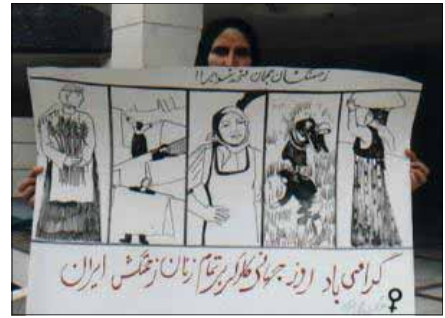 زحمتکشان جهان متحد شوید!!
گرامی باد روز جهانی کارگر بر تمام زنان زحمتکش ایران